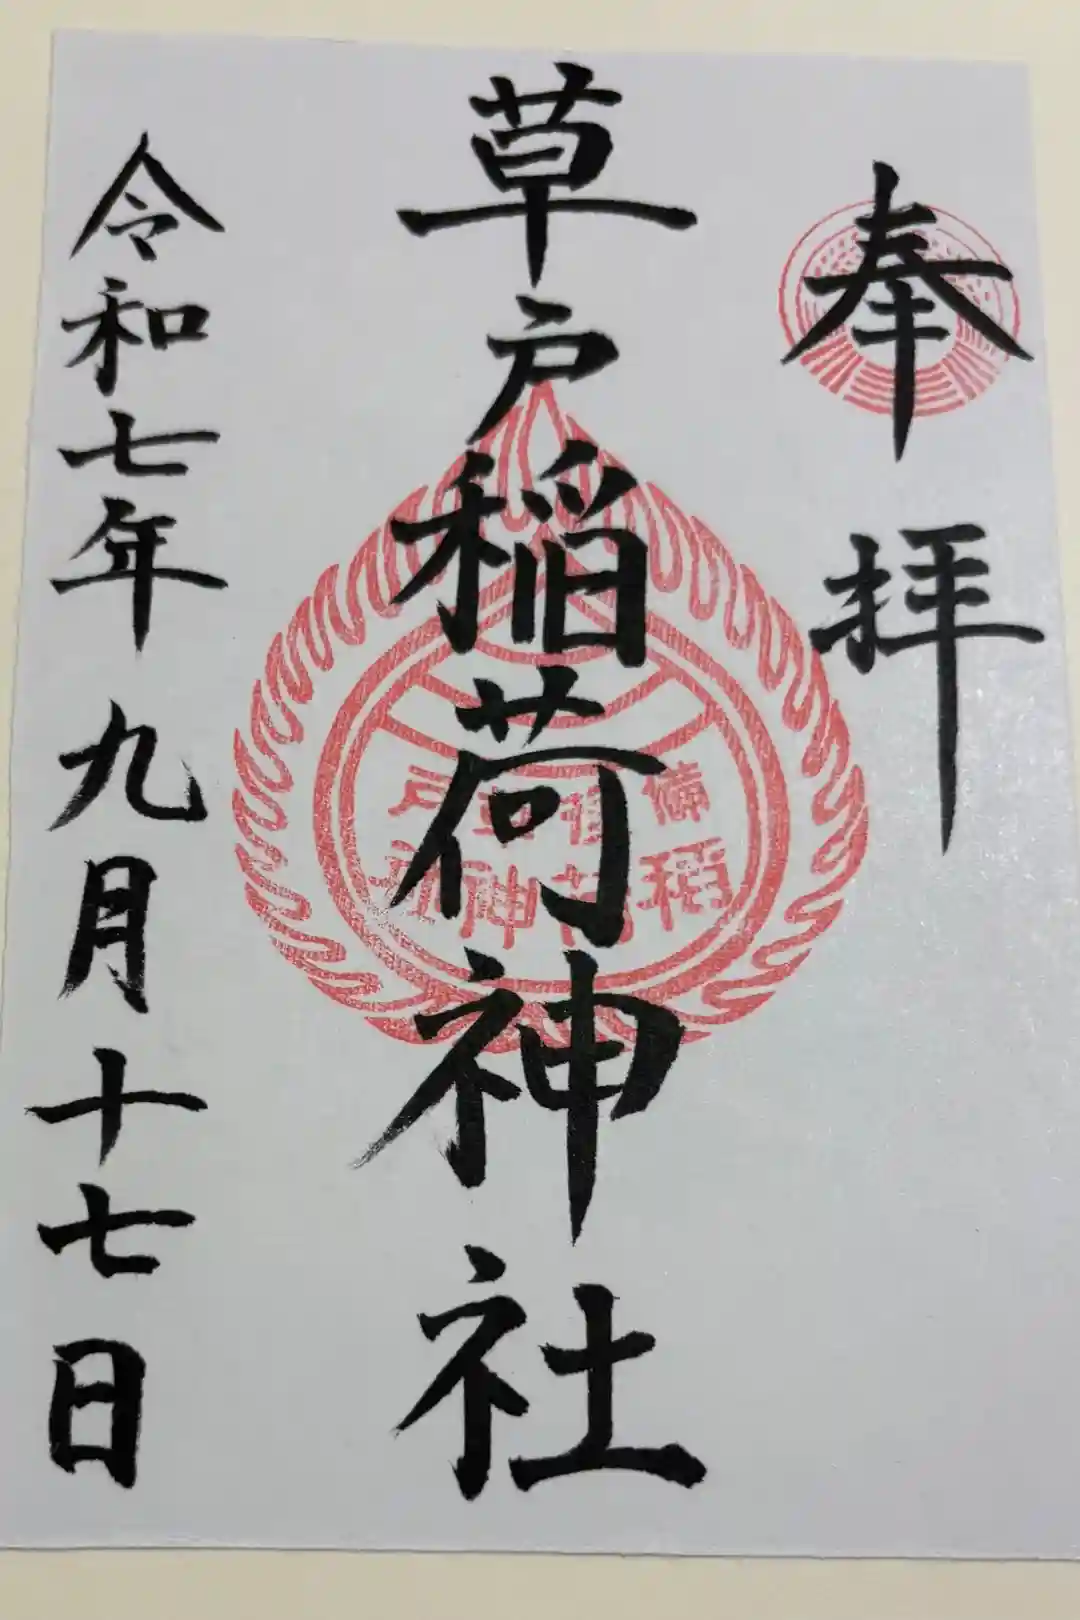 奉拝
草戸稲荷神社
備後草戸
稲荷神社
令和七年 九月十七日